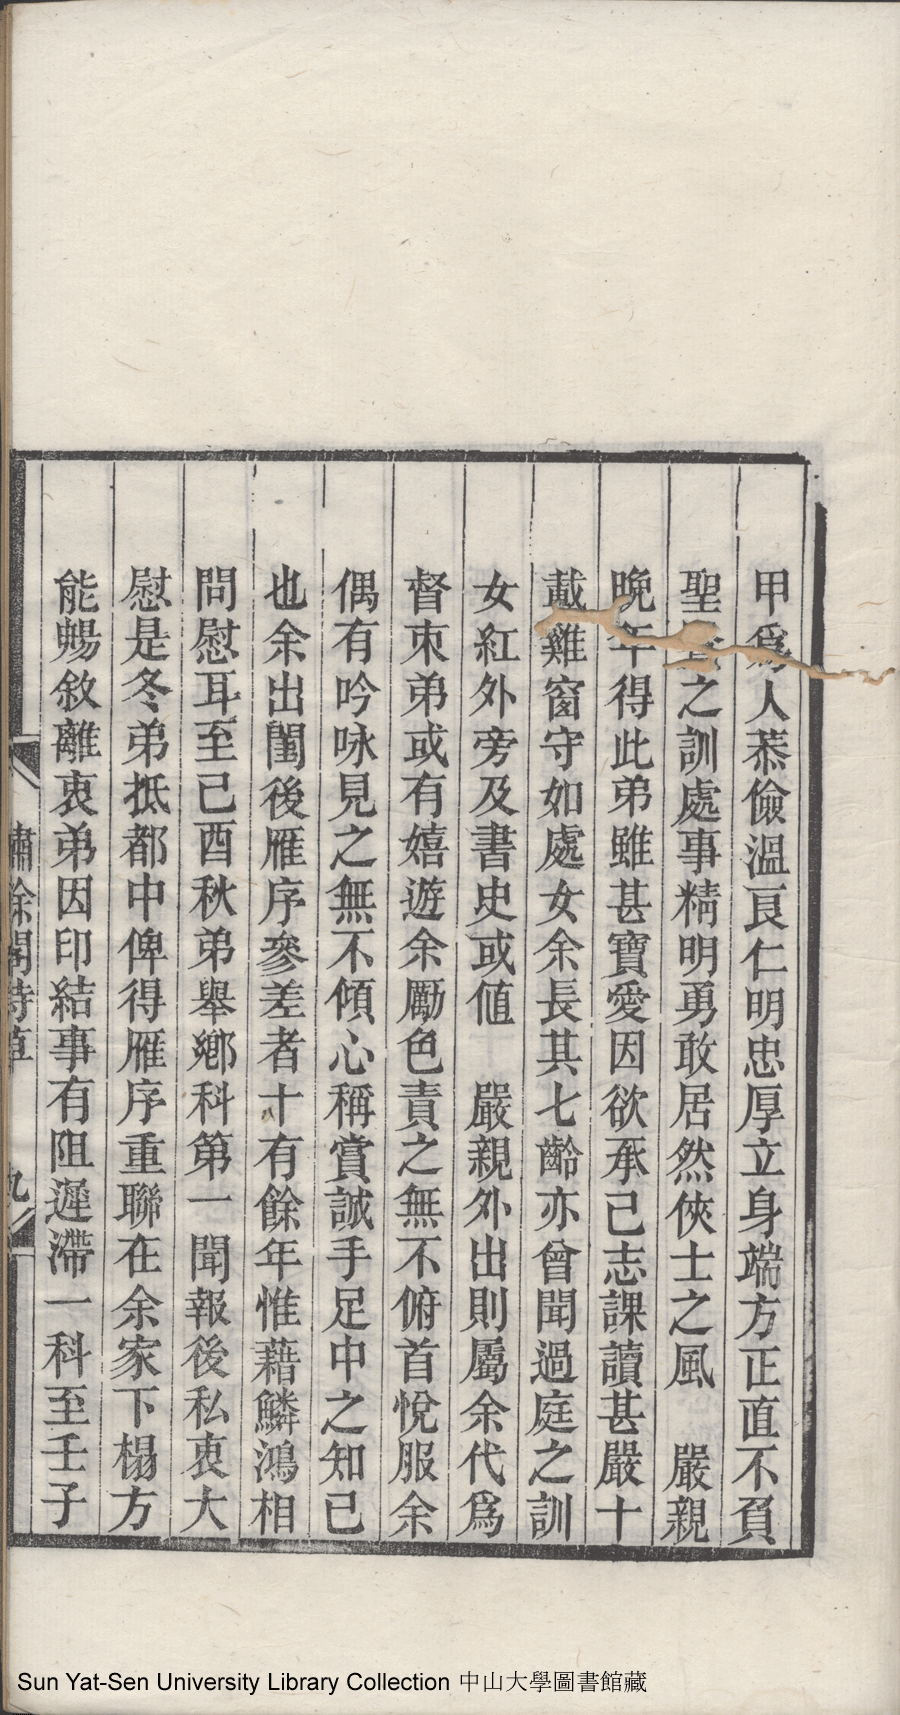 甲為人恭儉溫良仁明忠厚立身端方正直不負
聖之訓處事精明勇敢居然俠士之風　嚴親
晚年得此弟雖甚寶愛因欲承己志課讀甚嚴十
戴雞窗守如處女余長其七齡亦曾聞過庭之訓
女紅外旁及書史或值　嚴親外出則屬余代為
督朿弟或有嬉遊余厲色責之無不俯首悅服余
偶有吟咏見之無不傾心稱賞誠手足中之知已
也余出閨後雁序參差者十有餘年惟藉鱗鴻相
問慰耳至己酉秋弟舉鄉科第一聞報後私衷大
慰是冬弟抵都中俾得雁序重聯在余家下榻方
能暢敘離衷弟因印結事有阻遲滯一科至壬子
繡餘閣詩草　九
Sun Yat-Sen University Library Collection 中山大學圖書館藏